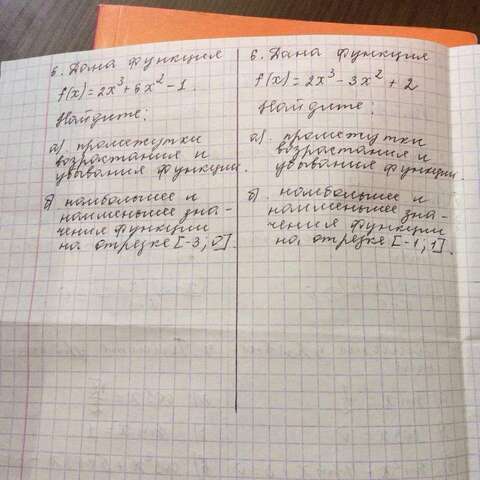 6. Дана функция
f(x)=2x³+6x²-1.
Найдите:
а) промежутки
возрастания и
убывания функции.
б) наибольшее и
наименьшее зна-
чения функции
на отрезке [-3; 0].
6. Дана функция
f(x)=2x³-3x²+2
Найдите:
а). промежутки
возрастания и
убывания функции.
б). наибольшее и
наименьшее зна-
чения функции
на отрезке [-1; 1].